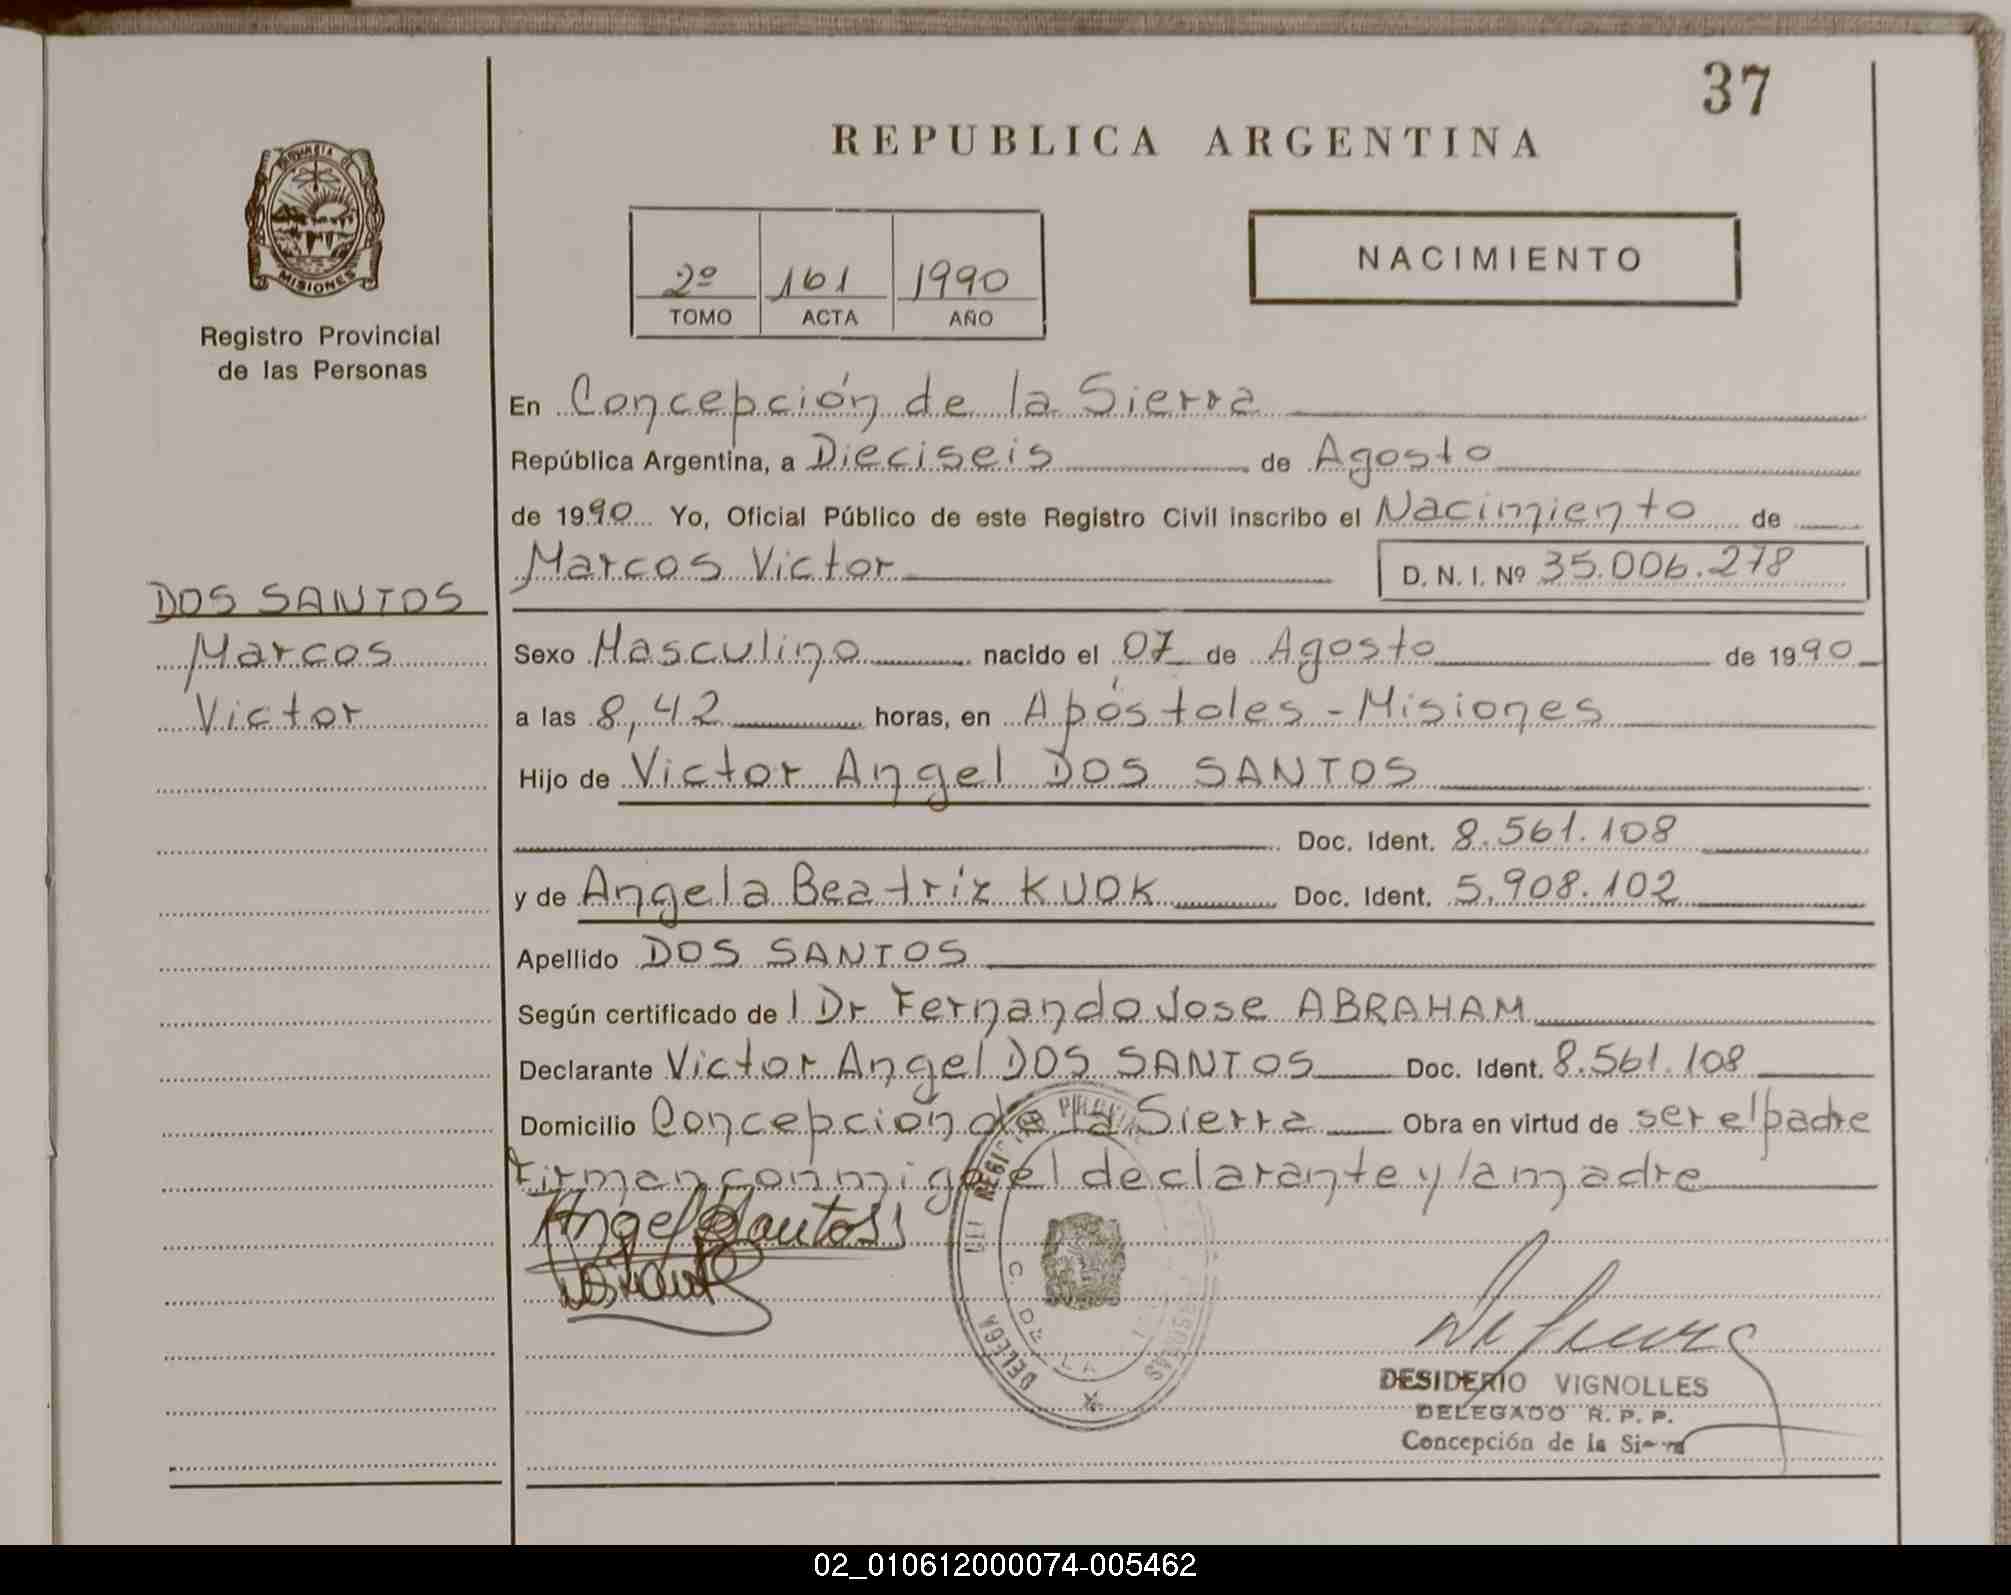 37
REPUBLICA ARGENTINA
MISIONES
Registro Provincial
de las Personas
2º 161 1990
TOMO ACTA AÑO
NACIMIENTO
En Concepción de la Sierra
República Argentina, a Dieciseis de Agosto
de 1990 Yo, Oficial Público de este Registro Civil inscribo el Nacimiento de
Marcos Victor D. N. I. Nº 35.006.278
DOS SANTOS
Marcos
Victor
Sexo Masculino nacido el 07 de Agosto de 1990
a las 8,42 horas, en Apóstoles - Misiones
Hijo de Victor Angel DOS SANTOS
Doc. Ident. 8.561.108
y de Angela Beatriz KUOK Doc. Ident. 5.908.102
Apellido DOS SANTOS
Según certificado de l Dr Fernando Jose ABRAHAM
Declarante Victor Angel DOS SANTOS Doc. Ident. 8.561.108
Domicilio Concepción de la Sierra Obra en virtud de ser el padre
Firman conmigo el declarante y la madre
Angel Santos
DELEGA
C. DE LA
DESIDERIO VIGNOLLES
DELEGADO R. P. P.
Concepción de la Sierra
02_010612000074-005462